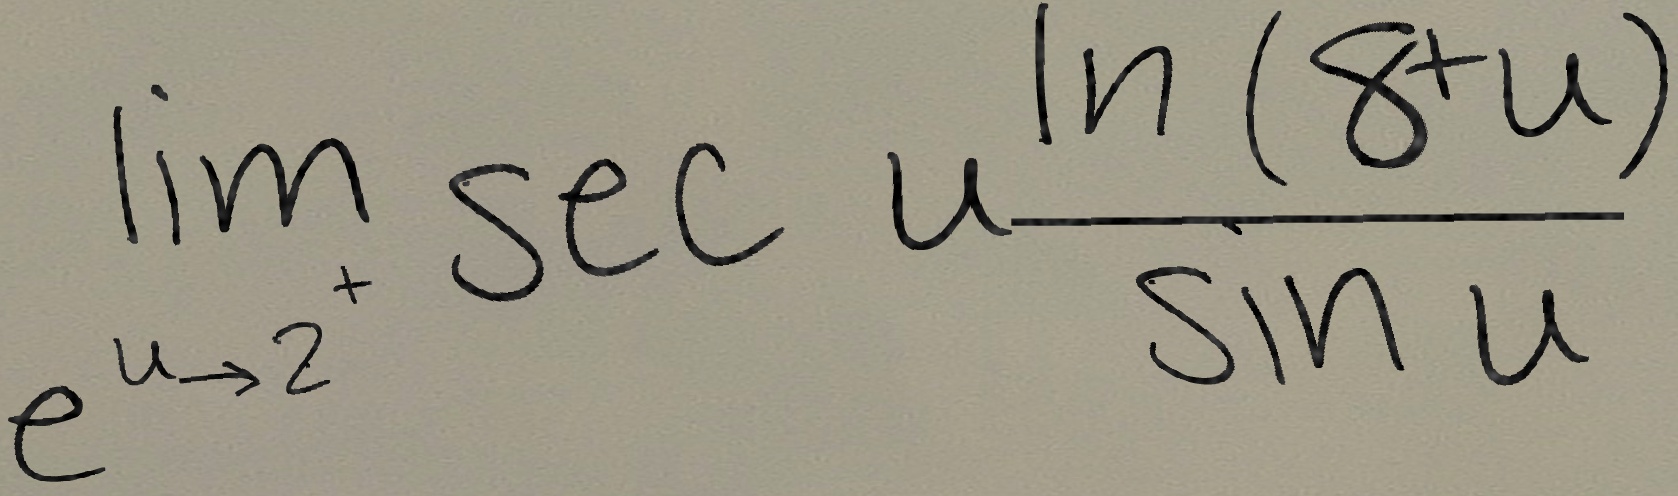 e^{\lim_{u \to 2^+} \sec u \frac{\ln(8+u)}{\sin u}}